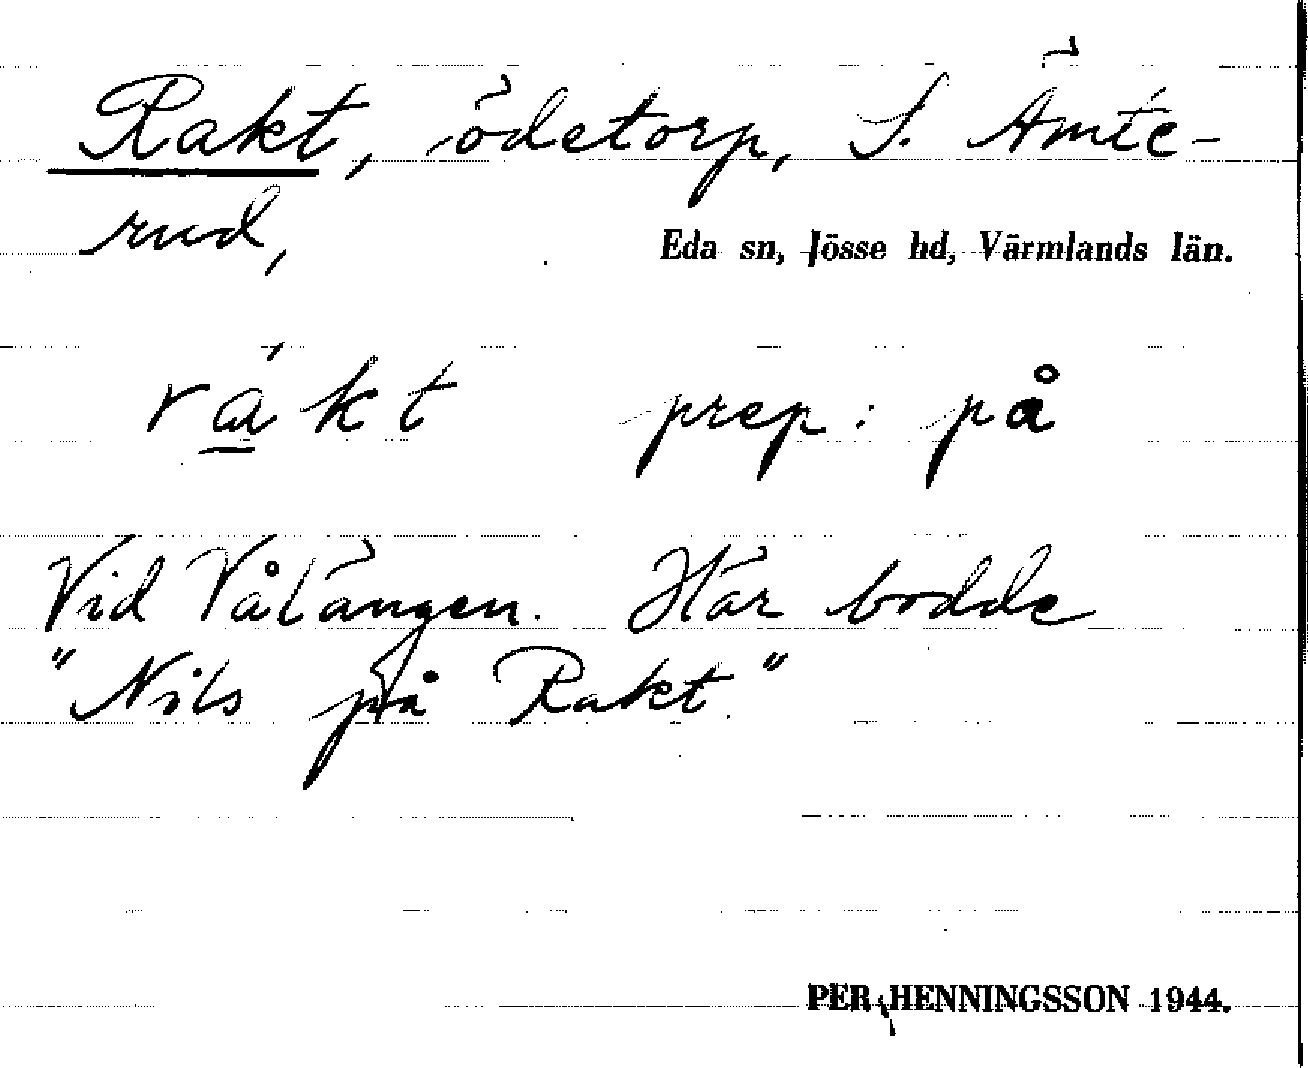 Rakt, ödetorp, S. Ämte-
rud,
Eda sn, Jösse hd, Värmlands län.
rákt prep: på
Vid Vålängen. Här bodde
"Nils på Rakt."
PER HENNINGSSON 1944.